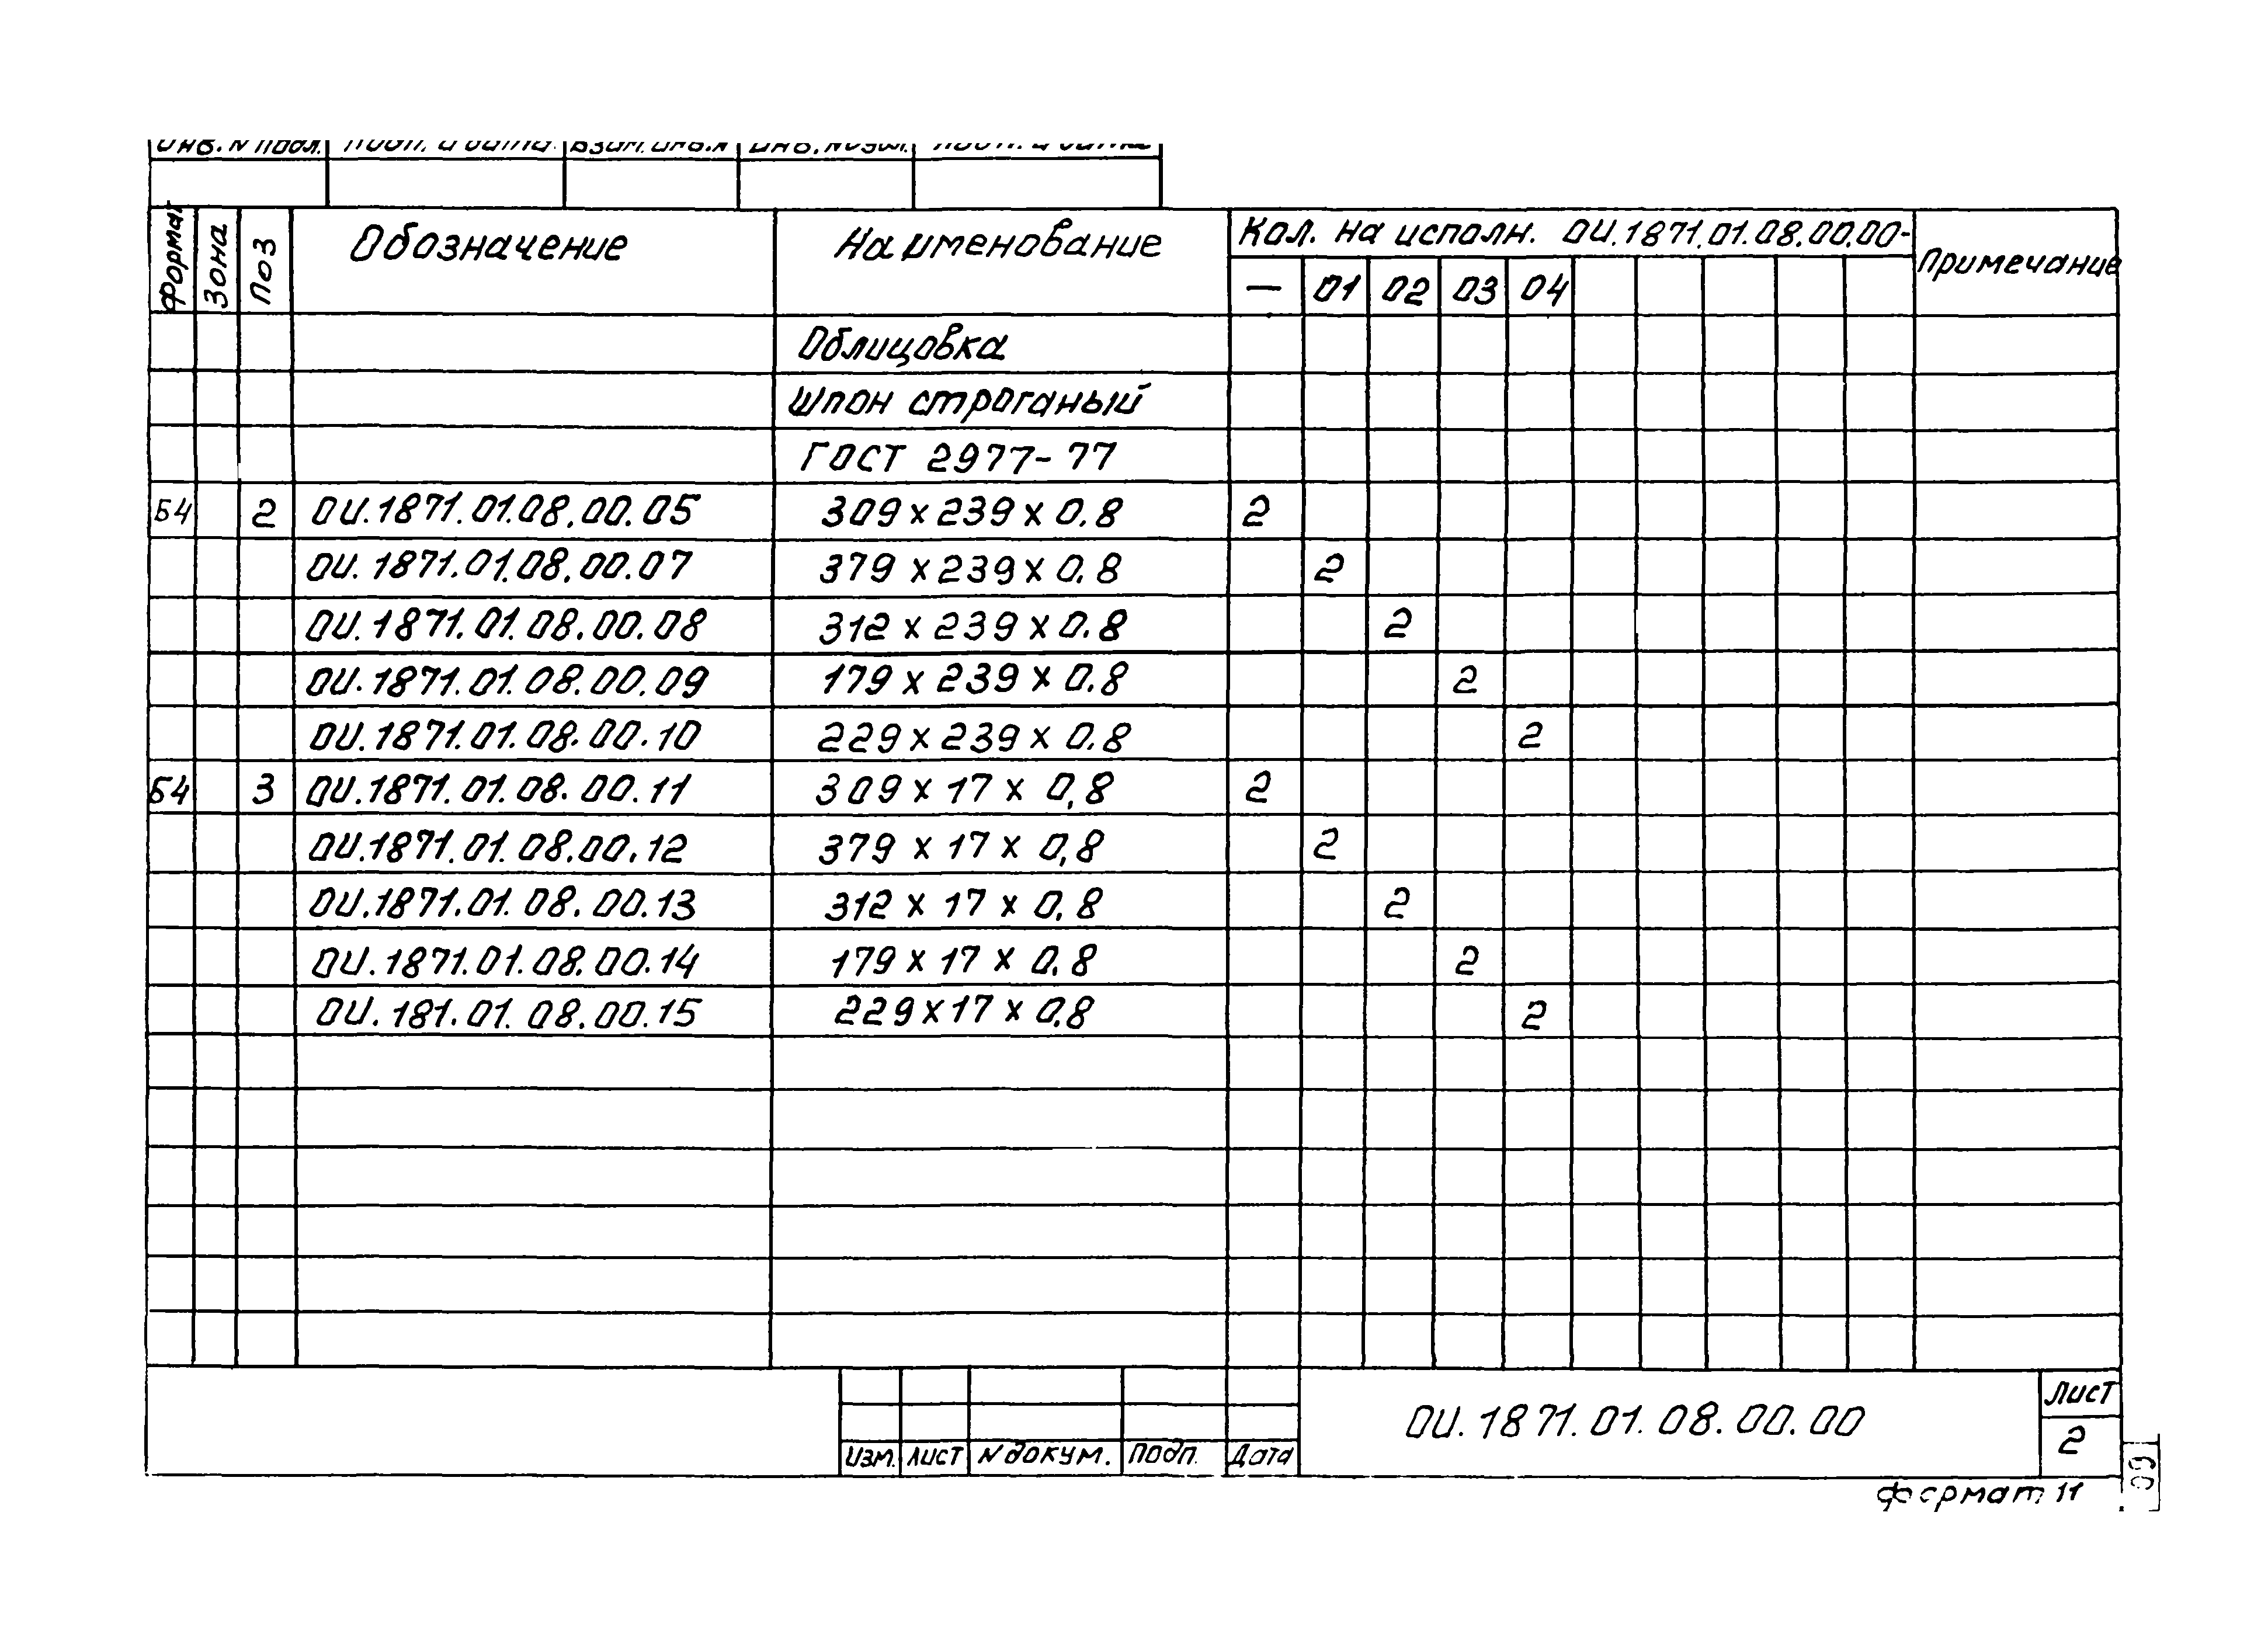 Инв. N подл. Подп. и дата Взам. инв. N Инв. N дубл. Подп. и дата
Формат Зона Поз Обозначение Наименование Кол. на исполн. ОИ.1871.01.08.00.00- Примечание
— 01 02 03 04
Облицовка
Шпон строганый
ГОСТ 2977-77
Б4 2 ОИ.1871.01.08.00.05 309 х 239 х 0.8 2
ОИ.1871.01.08.00.07 379 х 239 х 0.8 2
ОИ.1871.01.08.00.08 312 х 239 х 0.8 2
ОИ.1871.01.08.00.09 179 х 239 х 0.8 2
ОИ.1871.01.08.00.10 229 х 239 х 0.8 2
Б4 3 ОИ.1871.01.08.00.11 309 х 17 х 0,8 2
ОИ.1871.01.08.00.12 379 х 17 х 0,8 2
ОИ.1871.01.08.00.13 312 х 17 х 0,8 2
ОИ.1871.01.08.00.14 179 х 17 х 0.8 2
ОИ.181.01.08.00.15 229 х 17 х 0,8 2
Изм. Лист N докум. Подп. Дата
ОИ.1871.01.08.00.00
Лист
2
формат 11